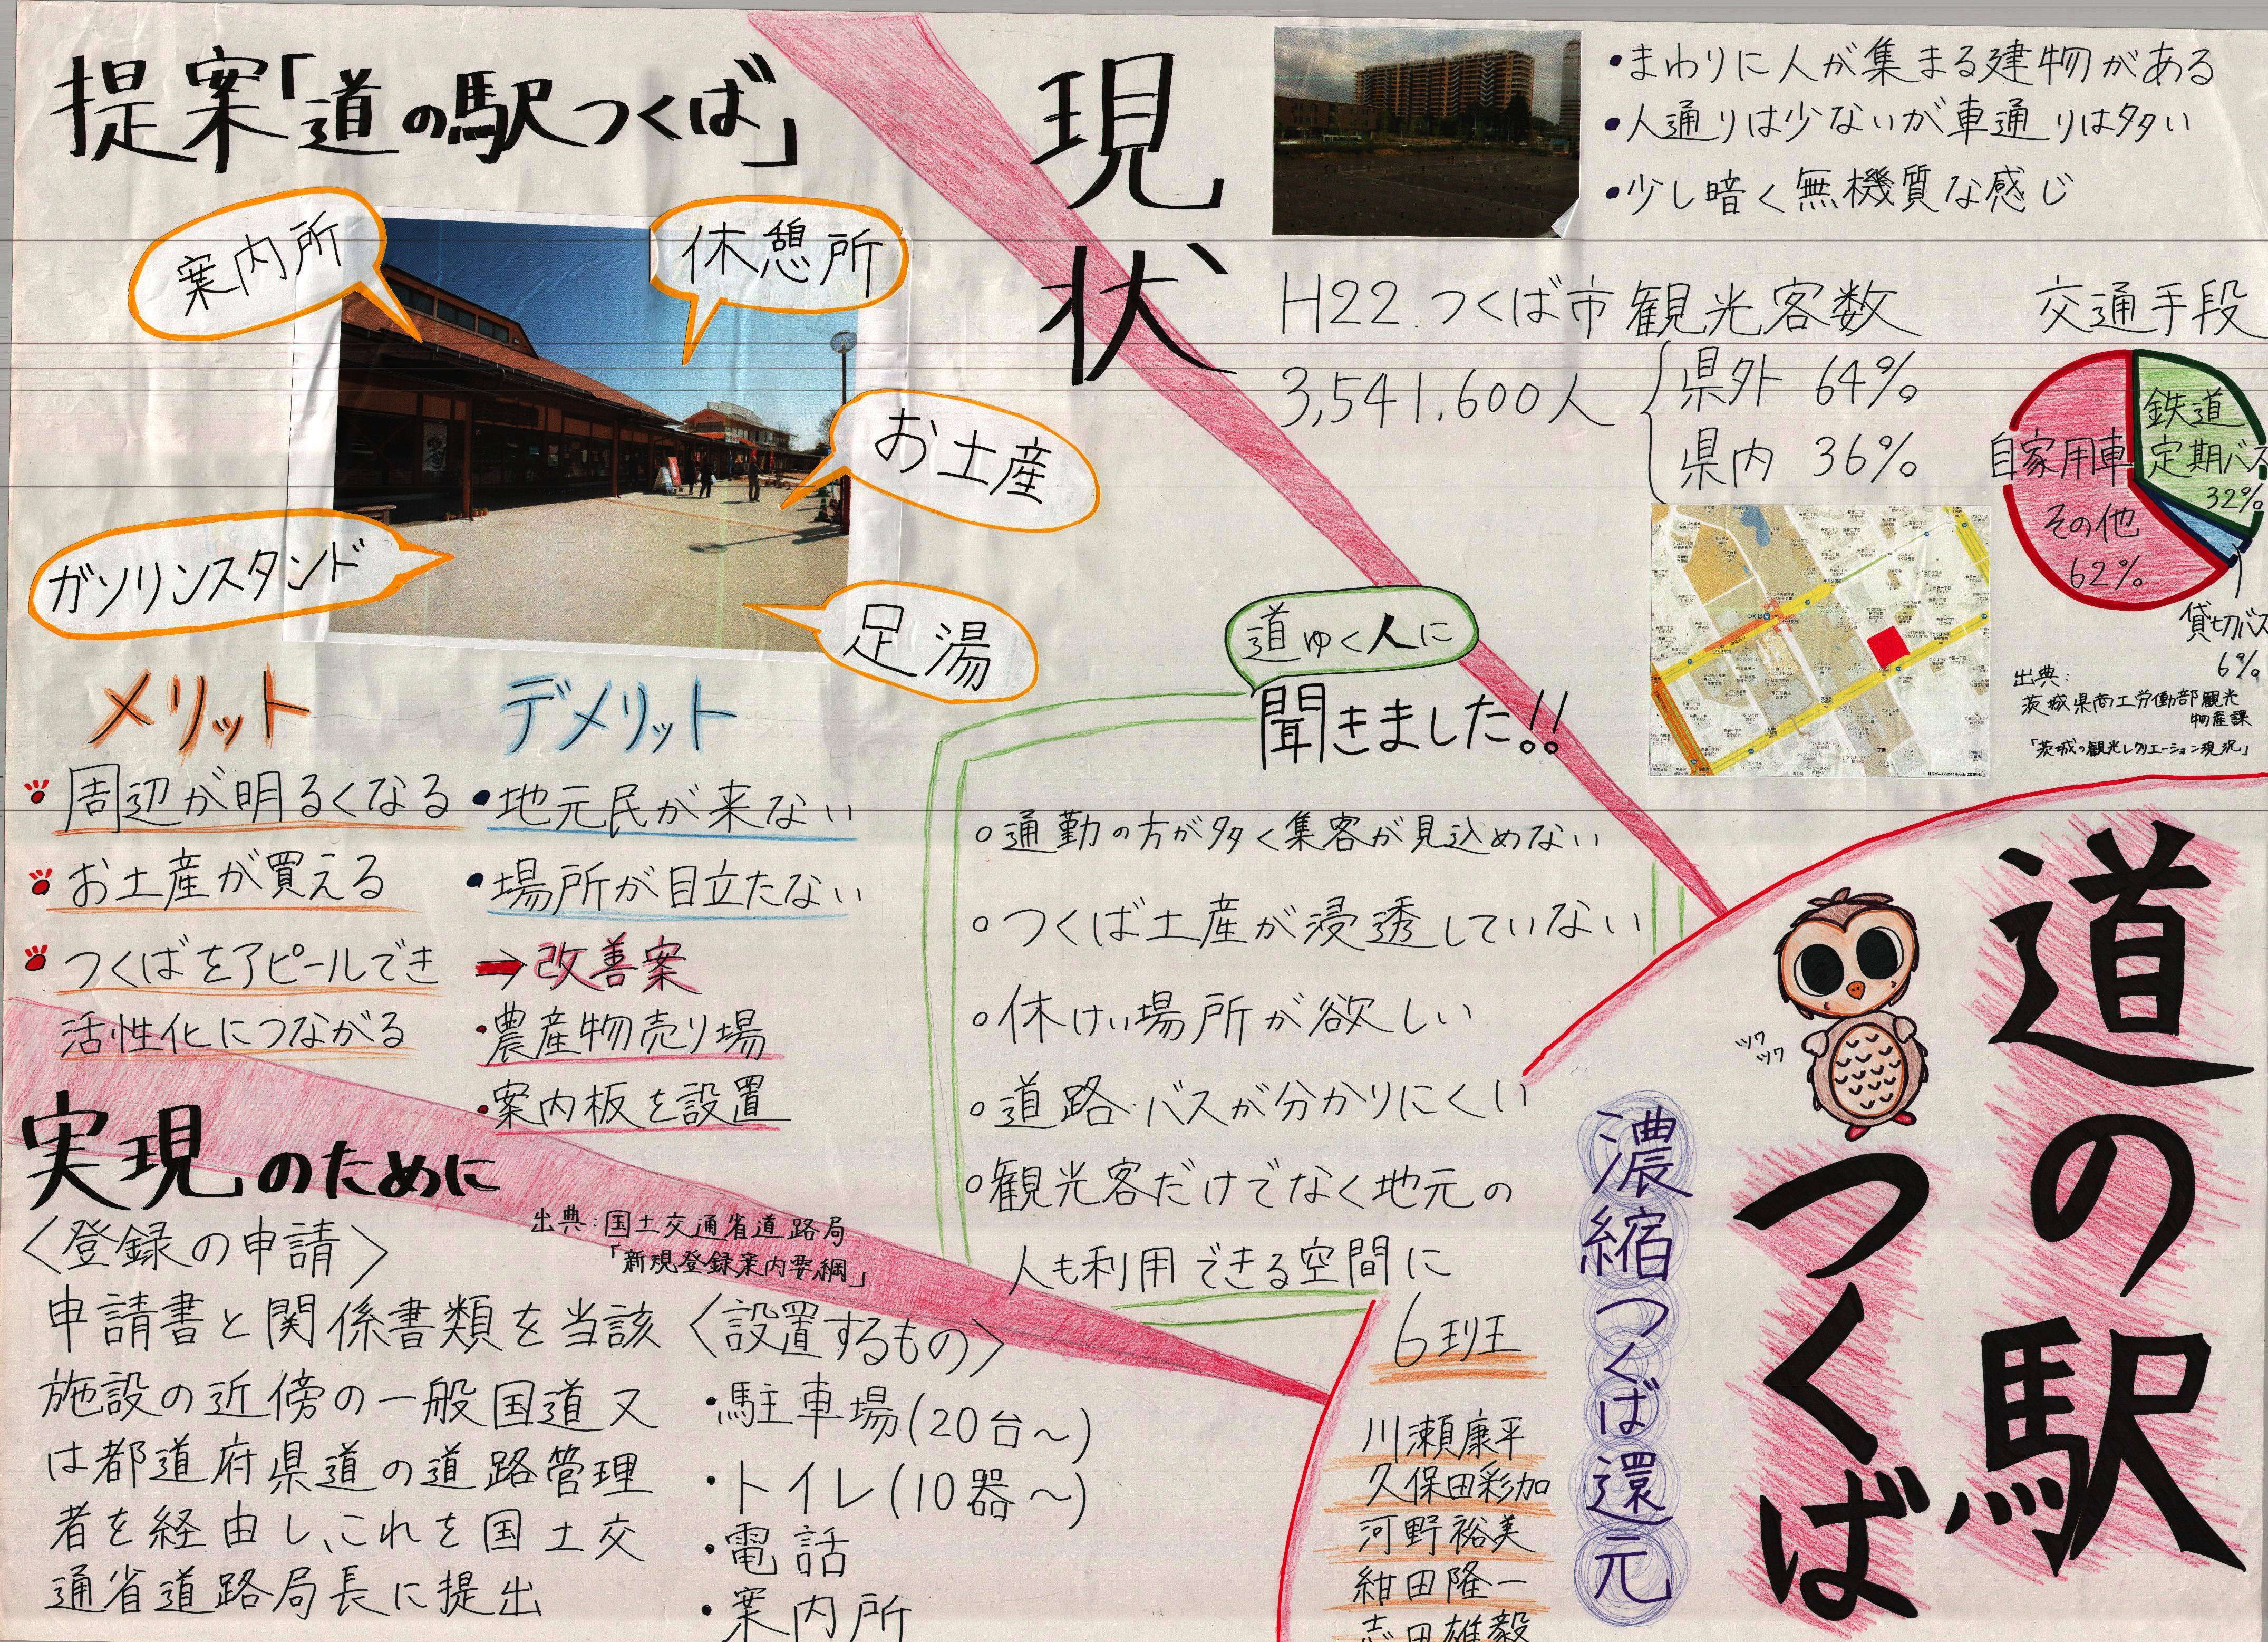 道の駅
つくば
濃縮つくば還元
ツワ
ツワ
6班
川瀬康平
久保田彩加
河野裕美
紺田隆一
志田雄毅
現状
・まわりに人が集まる建物がある
・人通りは少ないが車通りは多い
・少し暗く無機質な感じ
H22.つくば市観光客数
3,541,600人
県外 64%
県内 36%
交通手段
鉄道
定期バス
32%
自家用車
その他
62%
貸切バス
6%
出典:
茨城県商工労働部観光
物産課
「茨城の観光レクリエーション現況」
道ゆく人に
聞きました!!
○通勤の方が多く集客が見込めない
○つくば土産が浸透していない
○休けい場所が欲しい
○道路・バスが分かりにくい
○観光客だけでなく地元の
人も利用できる空間に
提案「道の駅つくば」
案内所
休憩所
お土産
ガソリンスタンド
足湯
メリット
周辺が明るくなる
お土産が買える
つくばをアピールでき
活性化につながる
デメリット
・地元民が来ない
・場所が目立たない
→改善案
・農産物売り場
・案内板を設置
実現のために
出典:国土交通省道路局
「新規登録案内要綱」
〈登録の申請〉
申請書と関係書類を当該
施設の近傍の一般国道又
は都道府県道の道路管理
者を経由し、これを国土交
通省道路局長に提出
〈設置するもの〉
・駐車場(20台〜)
・トイレ(10器〜)
・電話
・案内所